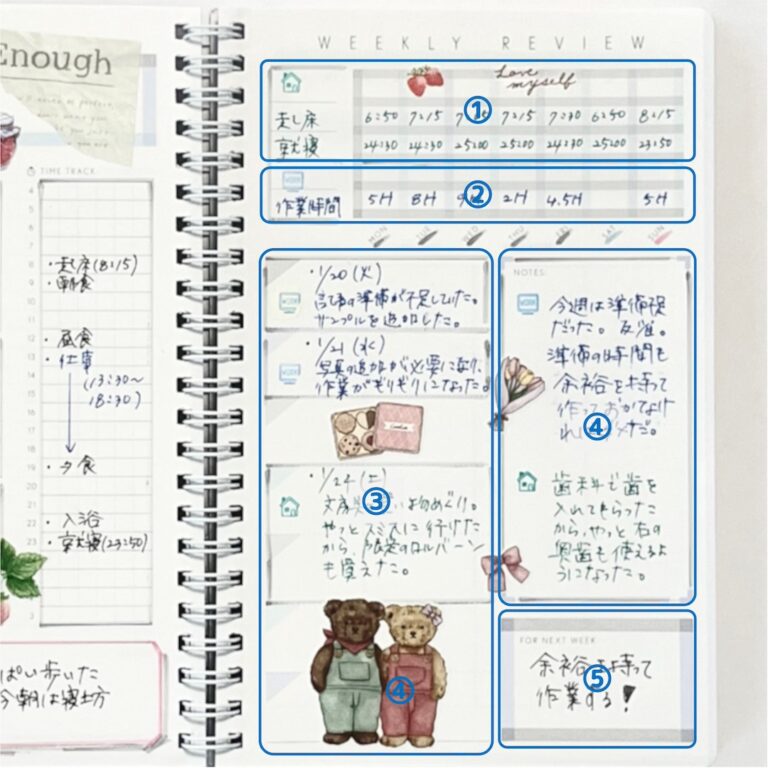 Enough
TIME TRACK
4
5
6
7
8 ・起床(8:15)
9 ・朝食
10
11
12 ・昼食
13 ・仕事
(13:30～
18:30)
19 ・夕食
22 ・入浴
23 ・就寝(23:50)
ぱい歩いた
今朝は寝坊
WEEKLY REVIEW
Love myself
①
起床 6:50 7:15 7:15 7:30 6:50 8:15
就寝 24:30 24:30 25:00 25:00 24:30 25:00 23:50
②
WORK
作業時間 5H 8H 2H 4.5H 5H
MON TUE WED THU FRI SAT SUN
・1/20(火)
WORK
記事の準備が不足していた。
サンプルを追加した。
・1/21(水)
WORK
写真の追加が必要になり、
作業がぎりぎりになった。
③
・1/24(土)
文房 い物めぐり。
やっとスミスに行けた
から、限定のロルバーン
も買えた。
④
NOTES:
WORK
今週は準備不足
だった。反省。
準備の時間も
余裕を持って
作っておかなけ
④
歯科で歯を
入れてもらった
から、やっと右の
奥歯も使えるよ
うになった。
FOR NEXT WEEK:
余裕を持って
⑤
作業する!